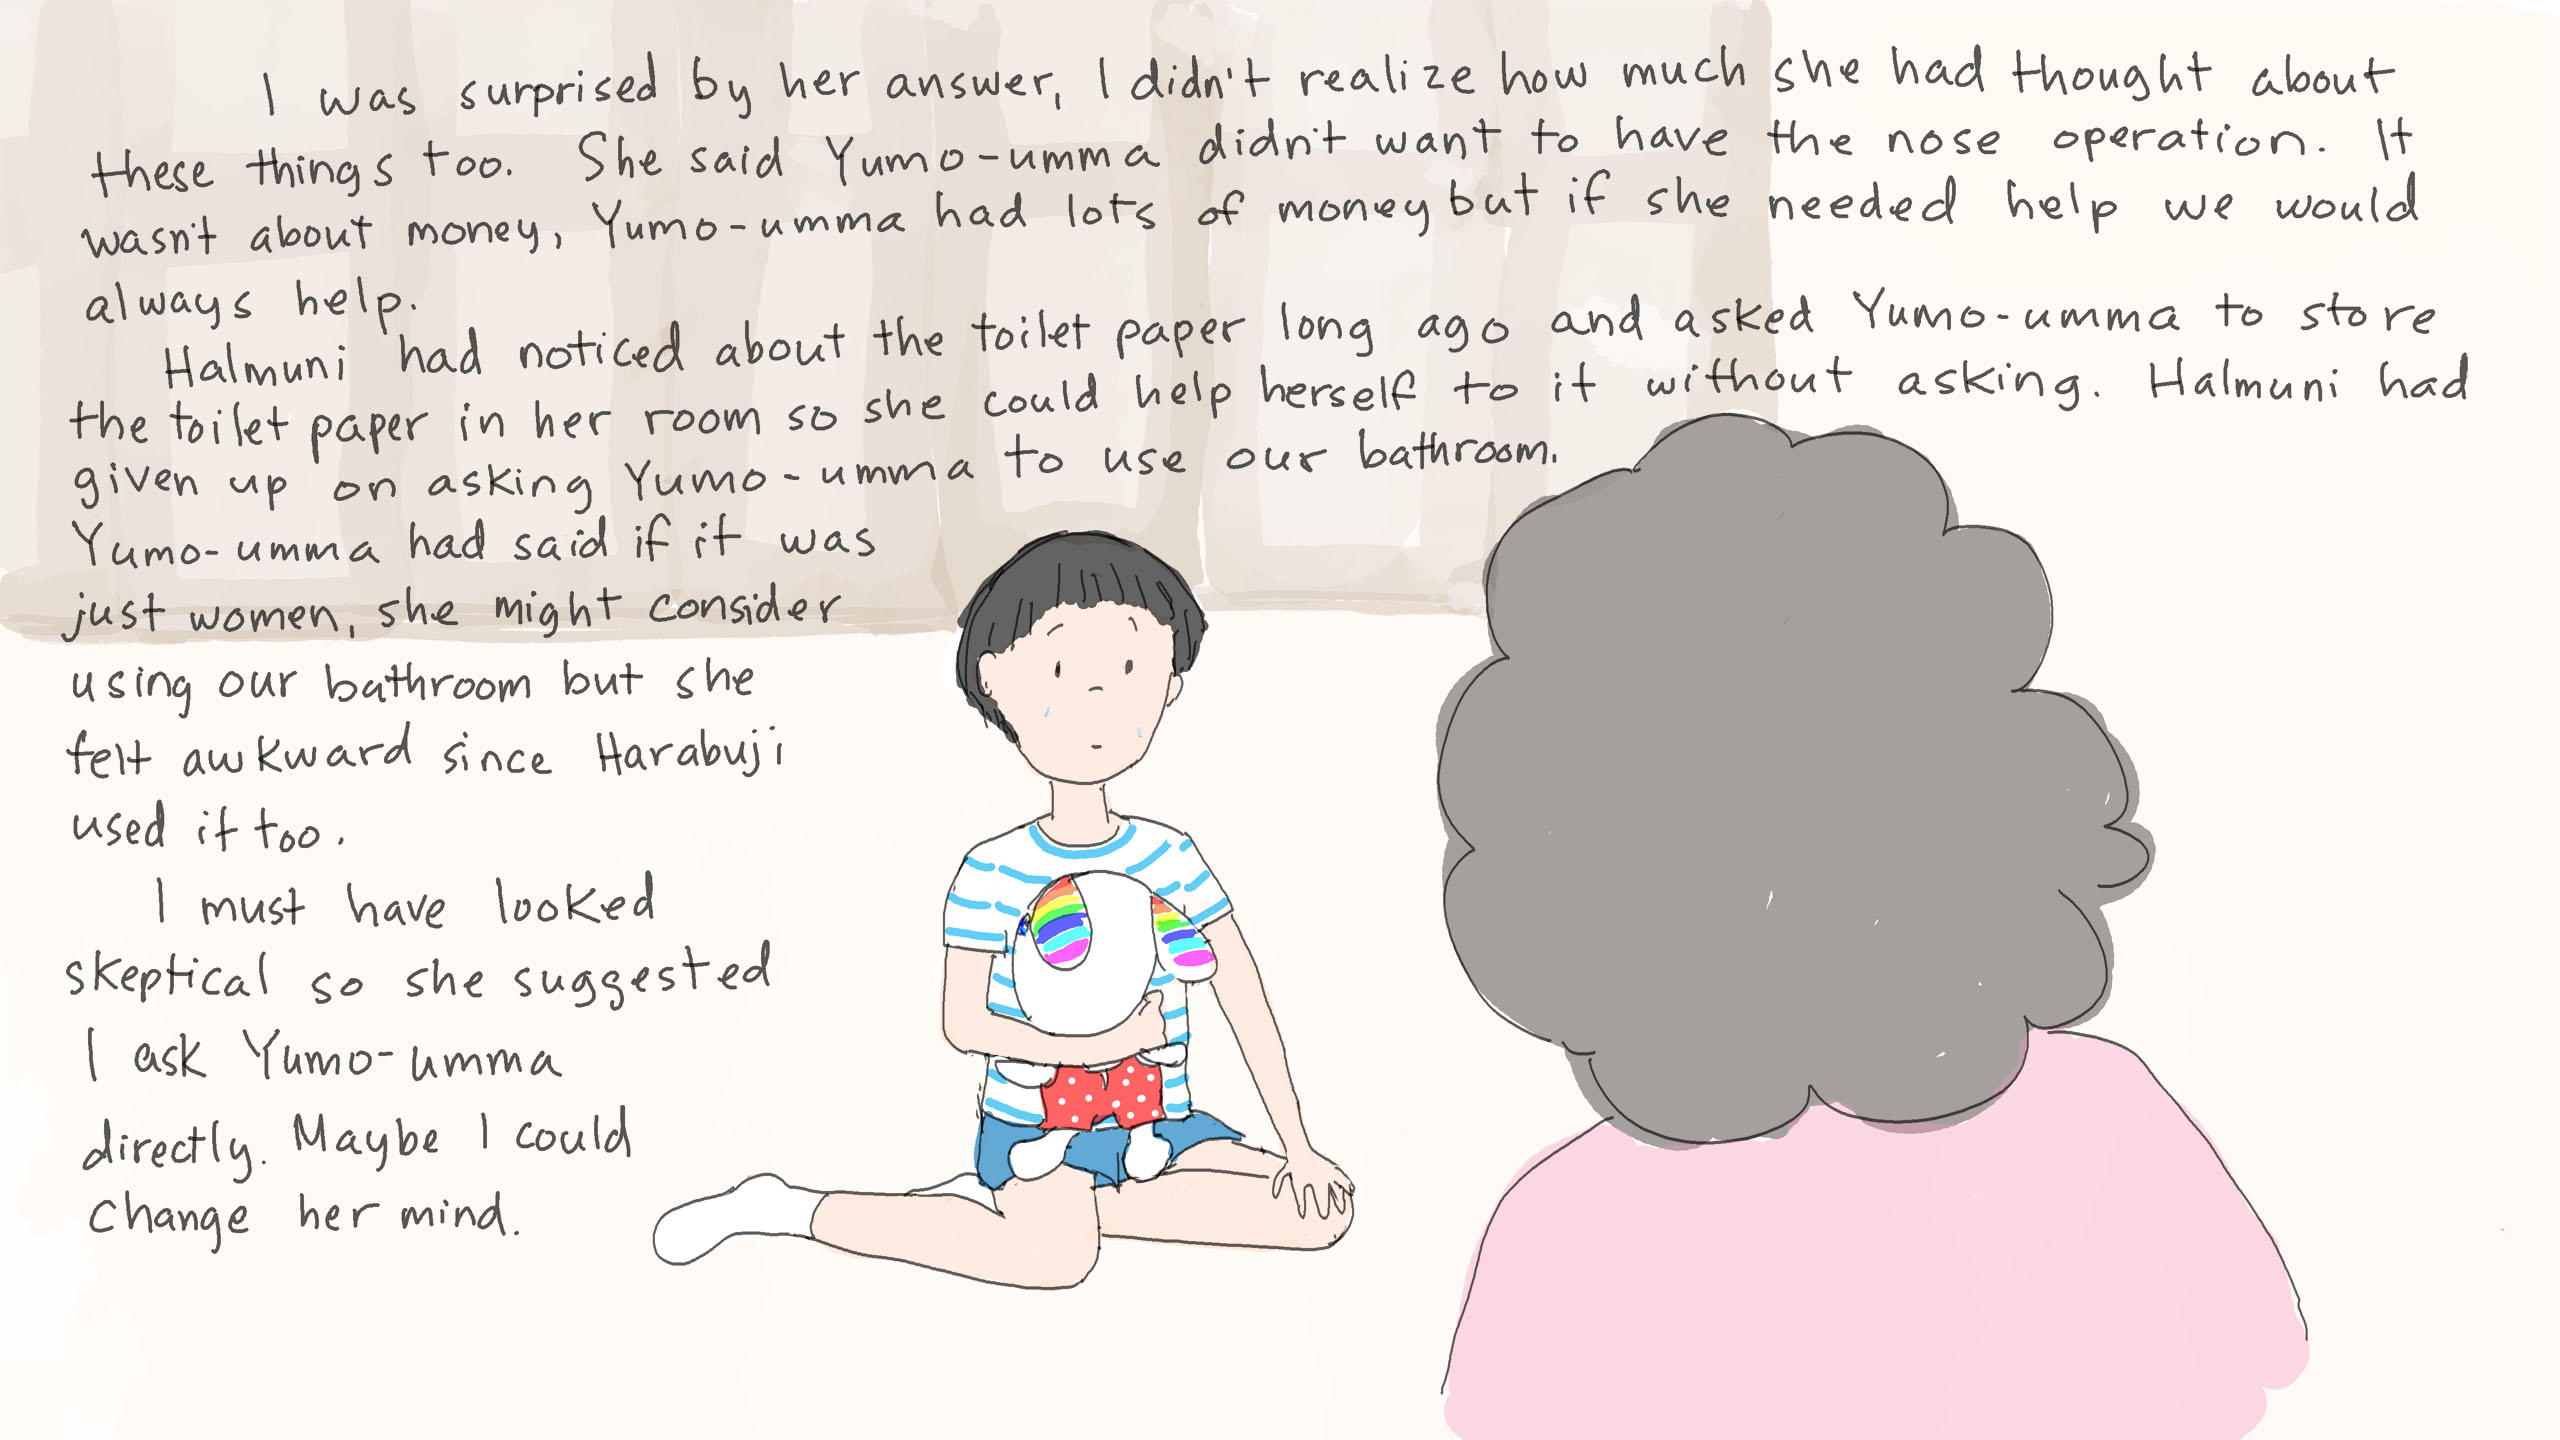 I was surprised by her answer, I didn't realize how much she had thought about
these things too. She said Yumo-umma didn't want to have the nose operation. It
wasn't about money, Yumo-umma had lots of money but if she needed help we would
always help.
Halmuni had noticed about the toilet paper long ago and asked Yumo-umma to store
the toilet paper in her room so she could help herself to it without asking. Halmuni had
given up on asking Yumo-umma to use our bathroom.
Yumo-umma had said if it was
just women, she might consider
using our bathroom but she
felt awkward since Harabuji
used it too.
I must have looked
skeptical so she suggested
I ask Yumo-umma
directly. Maybe I could
change her mind.